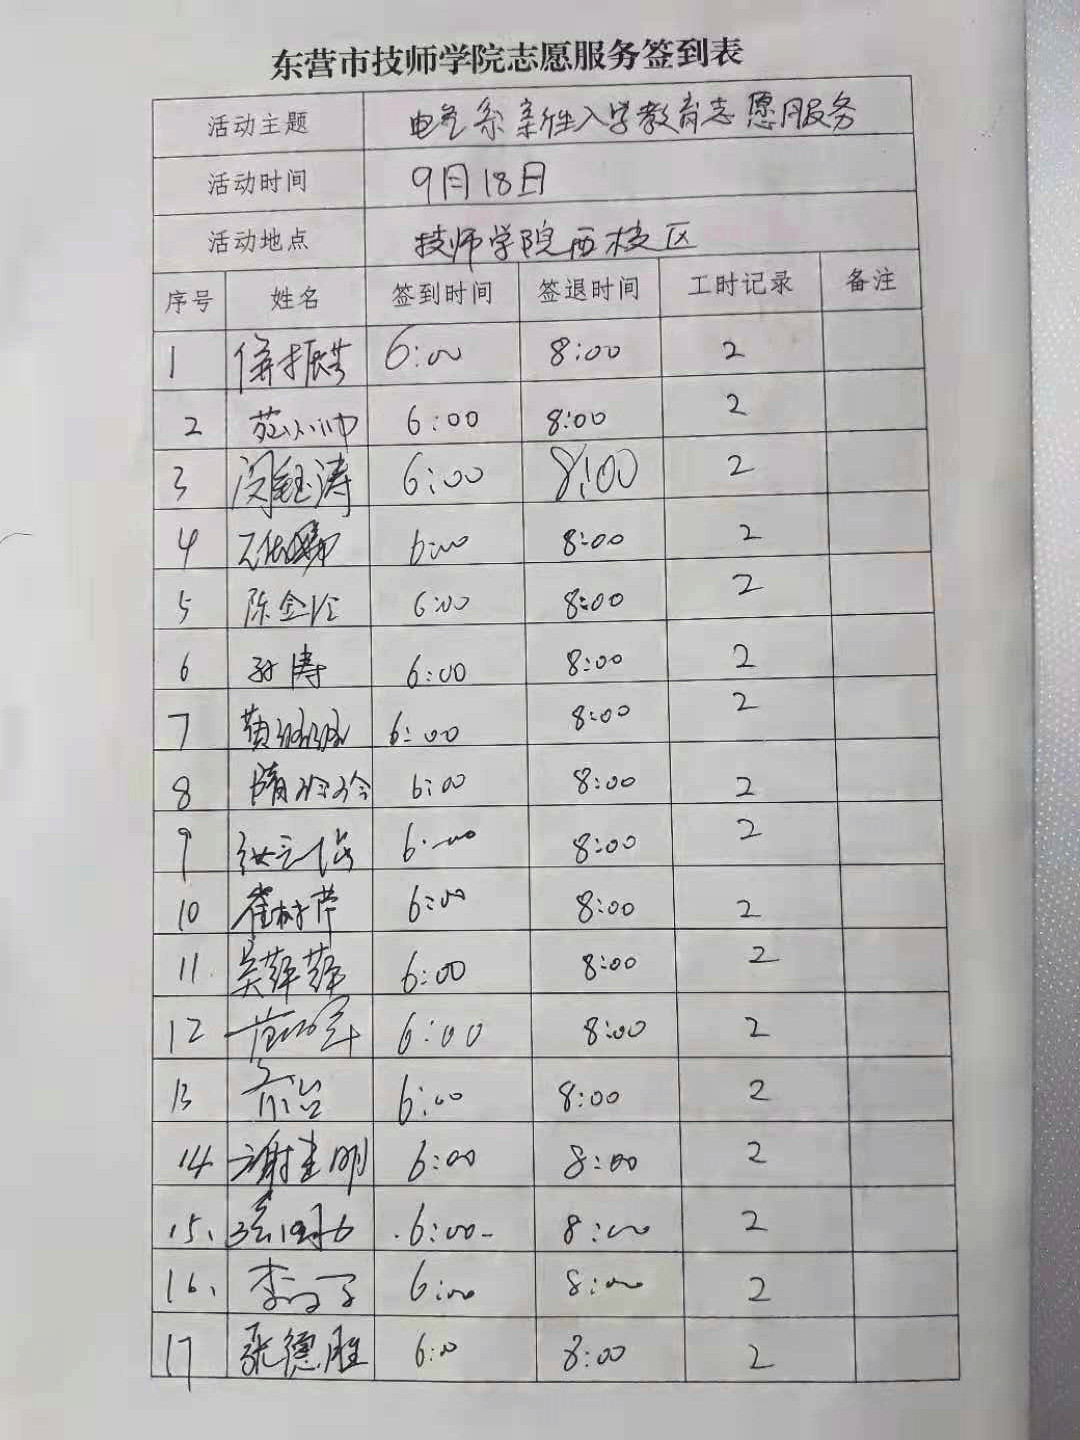 东营市技师学院志愿服务签到表
活动主题 电气系新生入学教育志愿服务
活动时间 9月18日
活动地点 技师学院西校区
序号 姓名 签到时间 签退时间 工时记录 备注
1 6:00 8:00 2
2 范小帅 6:00 8:00 2
3 闵钰涛 6:00 8:00 2
4 6:00 8:00 2
5 陈金 6:00 8:00 2
6 孙涛 6:00 8:00 2
7 黄 6:00 8:00 2
8 隋珍珍 6:00 8:00 2
9 6:00 8:00 2
10 崔树萍 6:00 8:00 2
11. 吴萍萍 6:00 8:00 2
12 6:00 8:00 2
13 6:00 8:00 2
14 谢建明 6:00 8:00 2
15. 6:00 8:00 2
16. 李 6:00 8:00 2
17 张德胜 6:00 8:00 2